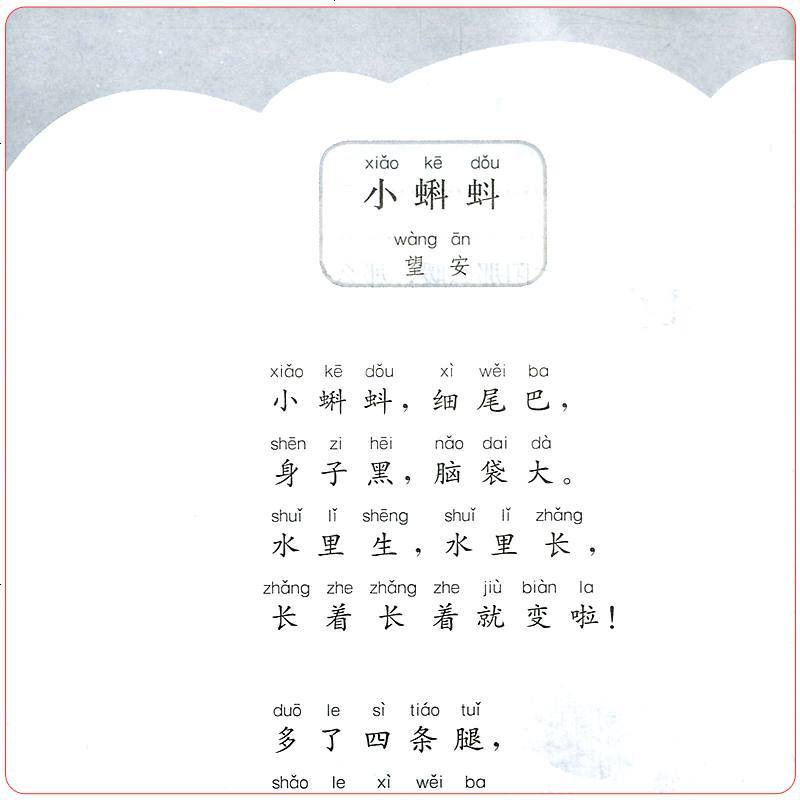 xiǎo kē dǒu
小蝌蚪
wàng ān
望安
xiǎo kē dǒu xì wěi ba
小蝌蚪，细尾巴，
shēn zi hēi nǎo dai dà
身子黑，脑袋大。
shuǐ lǐ shēng shuǐ lǐ zhǎng
水里生，水里长，
zhǎng zhe zhǎng zhe jiù biàn la
长着长着就变啦！
duō le sì tiáo tuǐ
多了四条腿，
shǎo le xì wěi ba